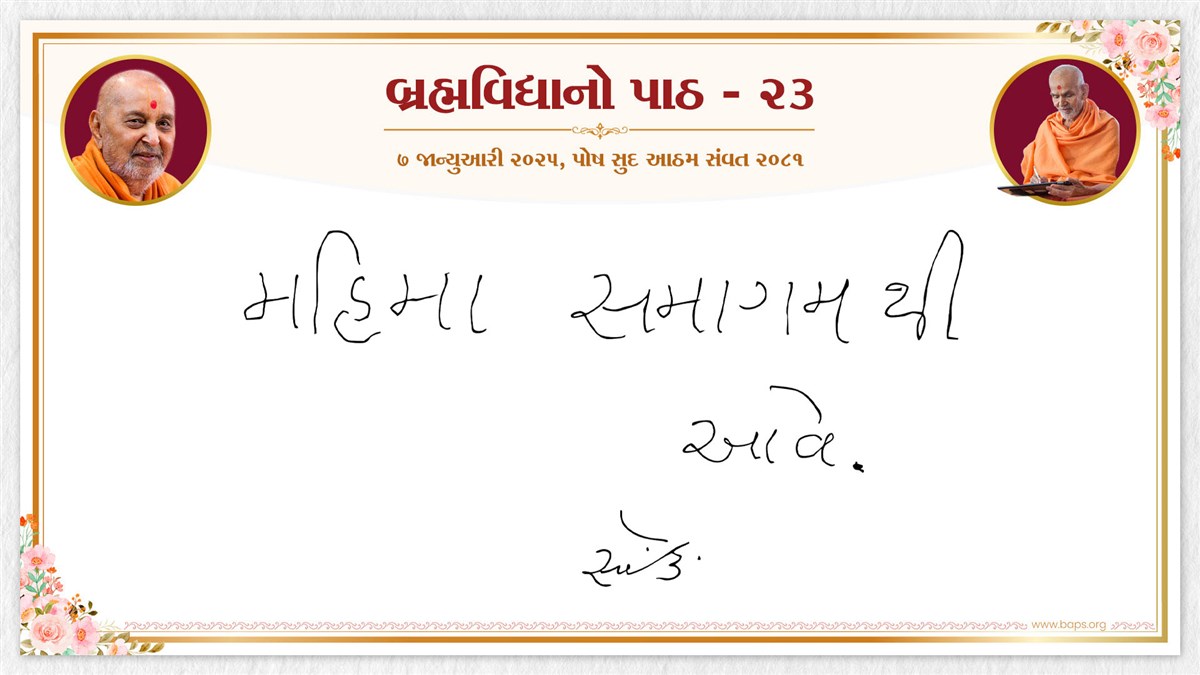 બ્રહ્મવિદ્યાનો પાઠ - ૨૩
૭ જાન્યુઆરી ૨૦૨૫, પોષ સુદ આઠમ સંવત ૨૦૮૧
મહિમા સમાગમથી
આવે.
www.baps.org